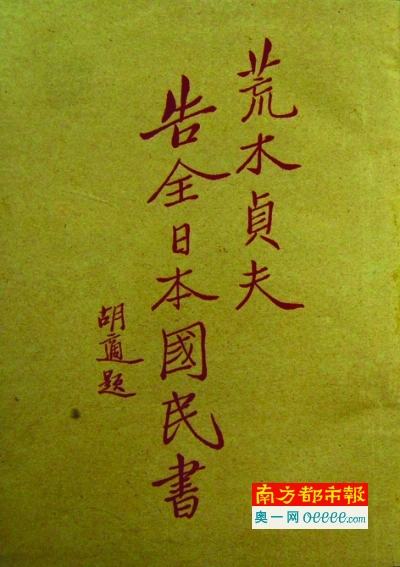 荒木貞夫
告全日本國民書
胡適題
南方都市報
奥一网 oeeee.com